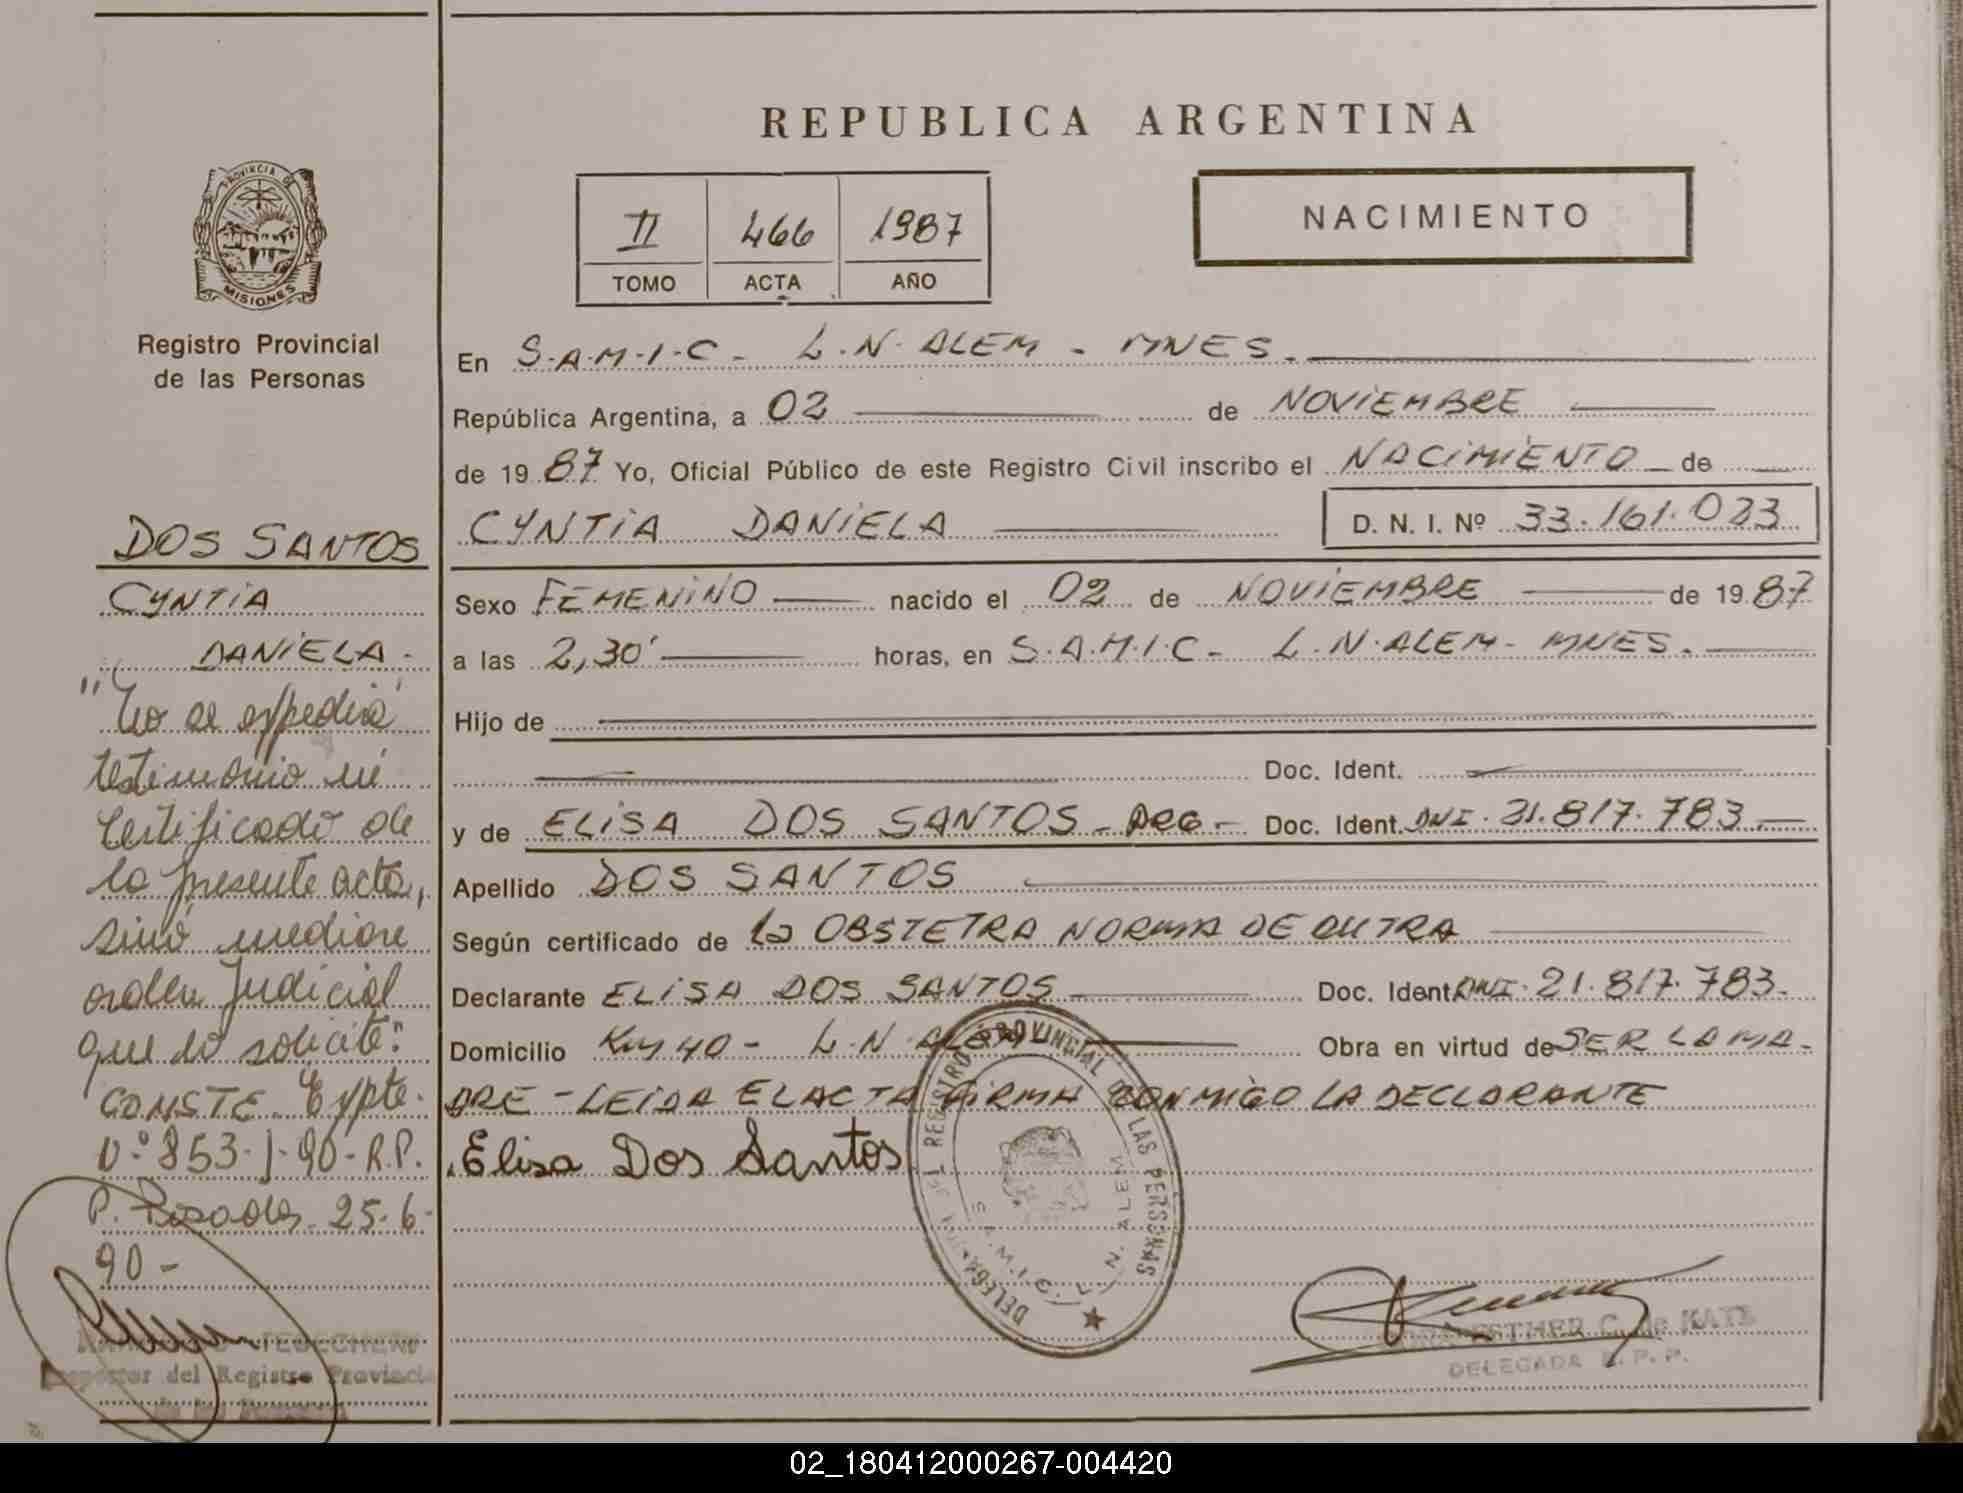 REPUBLICA ARGENTINA
PROVINCIA DE
MISIONES
Registro Provincial
de las Personas
II 466 1987
TOMO ACTA AÑO
NACIMIENTO
En S.A.M.I.C - L.N. ALEM - MNES.
República Argentina, a 02 de NOVIEMBRE
de 1987 Yo, Oficial Público de este Registro Civil inscribo el NACIMIENTO de
CYNTIA DANIELA D. N. I. Nº 33.161.023
Sexo FEMENINO nacido el 02 de NOVIEMBRE de 1987
a las 2,30' horas, en S.A.M.I.C - L.N. ALEM - MNES.
Hijo de
Doc. Ident.
y de ELISA DOS SANTOS - ARG - Doc. Ident. DNI. 21.817.783
Apellido DOS SANTOS
Según certificado de la OBSTETRA NORMA DE DUTRA
Declarante ELISA DOS SANTOS Doc. Ident DNI. 21.817.783.
Domicilio Km 40 - L.N. ALEM Obra en virtud de SER LA MA-
DRE - LEIDA EL ACTA FIRMA CONMIGO LA DECLARANTE
Elisa Dos Santos
DELEGACION DEL REGISTRO PROVINCIAL DE LAS PERSONAS
S.A.M.I.C. L.N. ALEM
ESTHER C. de KATZ
DELEGADA R.P.P.
DOS SANTOS
CYNTIA
DANIELA.
"No se expedirá
testimonio ni
Certificado de
la presente acta,
sinó mediare
orden Judicial
que lo solicite."
CONSTE Expte.
Nº 853-J-90-R.P.
P. Posadas 25-6-
90-
Inspector del Registro Provincial
de las Personas
02_180412000267-004420